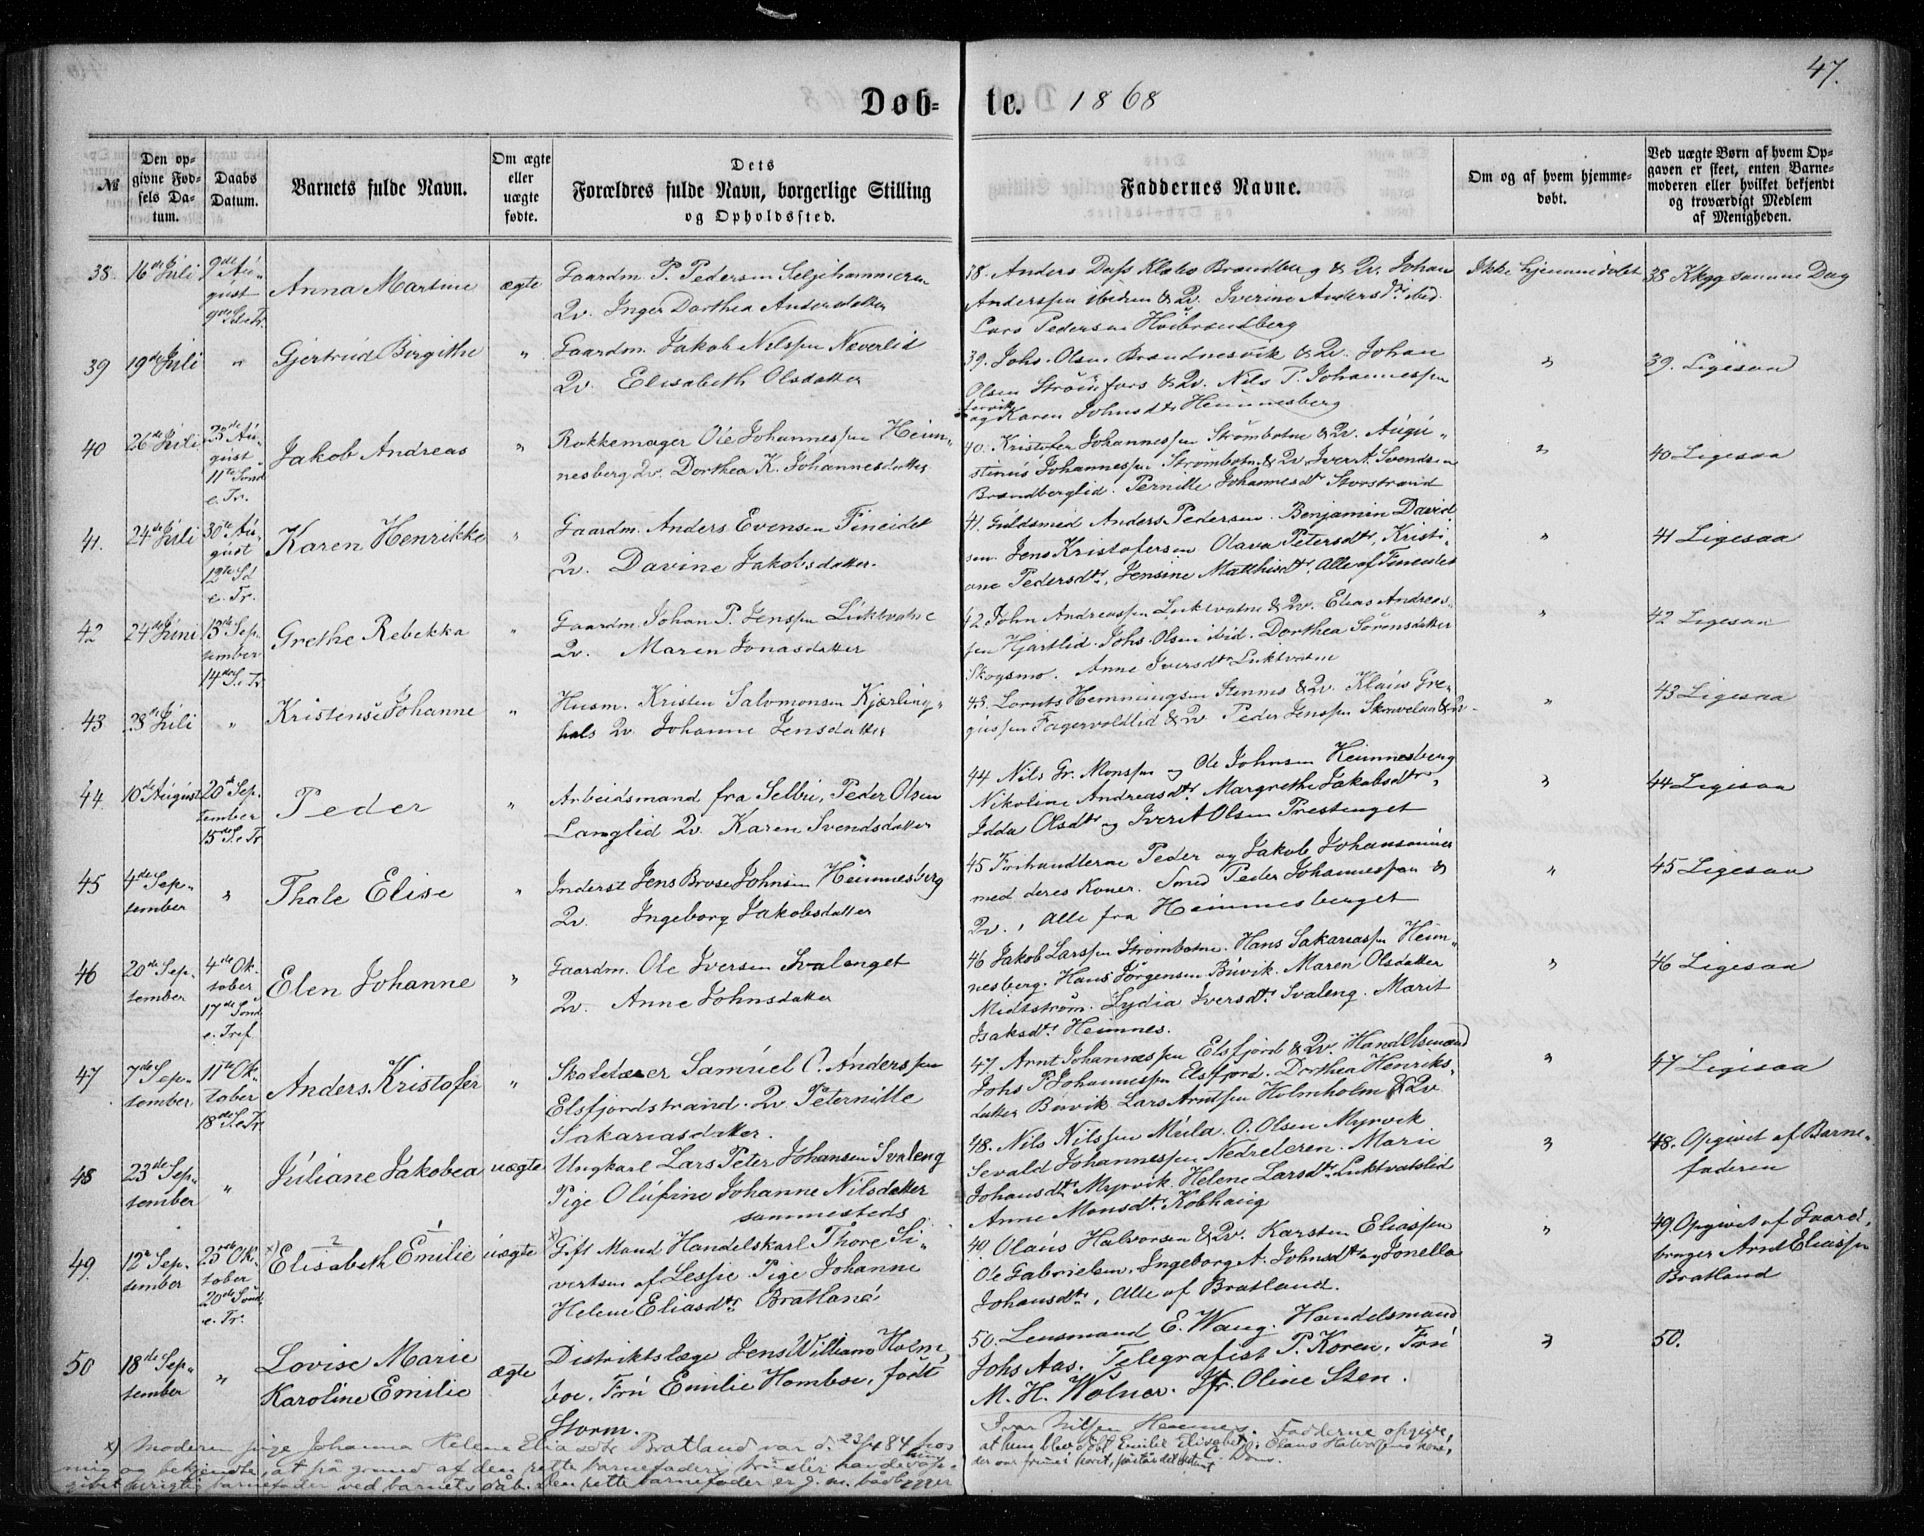 47.
Døb- te. 1868
№
Den opgivne Fødsels Datum.
Daabs Datum.
Barnets fulde Navn.
Om ægte eller uægte fødte.
Dets Forældres fulde Navn, borgerlige Stilling og Opholdssted.
Faddernes Navne.
Om og af hvem hjemmedøbt.
Ved uægte Børn af hvem Opgaven er skeet, enten Barnemoderen eller hvilket bekjendt og troværdigt Medlem af Menigheden.
38. 16de Juli 9de August 9de S. e. Tr. Anna Martine ægte
Gaardm. P. Pedersen Seljehammeren
Qv. Inger Dorthea Andersdatter
38. Anders Dass Klæbo Brandberg & Qv. Johan
Anderssen ibidem & Qv. Iverine Andersdtr ibid.
Lars Pedersen Høibrandsberg
Ikke hjemmedøbt
38 Kkgg samme Dag
39 19de Juli " Gjertrud Birgithe "
Gaardm. Jakob Nilssen Næverlid
Qv. Elisabeth Olsdatter
39. Johs. Olsen Brandnesvik & Qv. Johan
Olsen Strømfors & Qv. Nils P. Johannessen
og Karen Johnsdtr Hemnesberg
"
39. Ligesaa
40 26de Juli 23de August 11te Sønd e. Tr. Jakob Andreas "
Rokkemager Ole Johannessen Heimnesberg
Qv. Dorthea K. Johannesdatter
40. Kristofer Johannessen Strømbotne & Qv. Augustinus
Johannessen Strømbotn & Qv Iver A. Svendsen
Brandberglid. Pernille Johannesdtr Storstrand
"
40 Ligesaa
41. 24de Juli 30te August 12te Sd e. Tr. Karen Henrikke "
Gaardm. Anders Evensen Fineidet
Qv. Davine Jakobsdatter.
41. Guldsmed Anders Pedersen. Benjamin Davidsen.
Jens Kristofersen Olava Petersdtr, Kristiane
Pedersdtr, Jensine Matthisdtr. Alle af Fineidet
"
41 Ligesaa
42 24de Juni 13de September 14de S. e. Tr. Grethe Rebekka "
Gaardm. Johan P. Jenssen Luktvatne
Qv. Maren Jonasdatter
42. John Andreassen Luktvatne & Qv. Elias Andreassen
Hjartlid. Johs. Olsen ibid. Dorthea Sørensdatter
Skogsmo. Anne Iversdtr Luktvatne
"
42 Ligesaa
43 28de Juli " Kristense Johanne "
Husm. Kristen Salomonsen Kjærlinghals
Qv Johanne Jensdatter
43. Lornts Hemmingsen Stennes & Qv. Klaus Gregussen
Fagervoldlid & Qv Peder Jenssen & Qv
"
43 Ligesaa
44 10de August 20de September 15de S. e. Tr. Peder "
Arbeidsmand fra Selbu, Peder Olsen
Langlid Qv. Karen Svendsdatter
44 Nils Gr. Monssen og Ole Johnsen Heimnesberg
Nikoline Andreasdtr. Margrethe Jakobsdtr,
Idda Olsdtr og Iver A Olsen Prestenget
"
44 Ligesaa
45 4de September " Thale Elise "
Inderst Jens Brose Johnsen Heimnesberg
Qv. Ingeborg Jakobsdatter
45 Peder og Jakob Johansønner
med deres Koner. Smed Peder Johannessen &
Qv., Alle fra Heimnesberget
"
45 Ligesaa
46 20de September 4de Oktober 17de Sønd e. Tref. Elen Johanne "
Gaardm. Ole Iversen Svalenget
Qv. Anne Johnsdatter
46 Jakob Larssen Strømbotne. Hans Sakariassen Heimnesberg.
Hans Jørgensen Buvik. Maren Olsdatter
Midtstrøm. Lydia Iversdtr Svaleng. Marit
Isaksdtr Heimnes.
"
46 Ligesaa
47 7de September 11te Oktober 18de S. e. Tr. Anders Kristofer "
Skolelærer Samuel C. Anderssen
Elsfjordstrand. Qv. Peternille
Sakariasdatter.
47. Arnt Johannessen Elsfjord & Qv. Handelsmand
Johs P Johannessen Elsfjord. Dorthea Henriksdatter
Buvik Lars Arntssen Holmholm & Qv
"
47 Ligesaa
48 23de September " Juliane Jakobea uægte
Ungkarl Lars Peter Johansen Svaleng
Pige Olufine Johanne Nilsdatter
sammesteds
48. Nils Nilssen Meila. O. Olsen Myrvik
Sevald Johannessen Nedreleren. Marie
Johansdtr Myrvik Helene Larsdtr Luktvatslid
Anne Monsdtr Kobhaug
"
48. Opgivet af Barnefaderen
49 12te September 25de Oktober 20de Sønd. e. Tr. x) Elisabeth Emilie uægte
x) Gift Mand Handelskarl Thore Sivertsen
af Lessie Pige Johanne
Helene Eliasdtr Bratland
49 Olaus Halvorsen & Qv. Karsten Eliassen
Ole Gabrielsen, Ingeborg A. Johnsdtr og Jonella
Johansdtr, Alle af Bratland.
"
49 Opgivet af Gaardbruger Arnt Eliassen Bratland
50 18de September " Lovise Marie Karoline Emilie ægte
Distriktslæge Jens William Holmboe,
Fru Emilie Homboe, født
Storm.
50. Lensmand E. Wang. Handelsmand
Johs Aas. Telegrafist P. Koren, Fru
M. H. Wolner. Jfr. Oline Sten.
"
50.
x) Moderen pige Johanna Helene Eliasdtr Bratland var d. 23/4 84 hos
mig og bekjendte, at på grund af den rette barnefaders trusler havde hun opgivet
urigtig barnefader ved barnets dåb. Den rette barnefader er g. m. bådbygger
Ivar Nilsen Hemnes. Fadderne opgive,
at hun blev døbt Emilie Elisabet, Olaus Halvorsens kone,